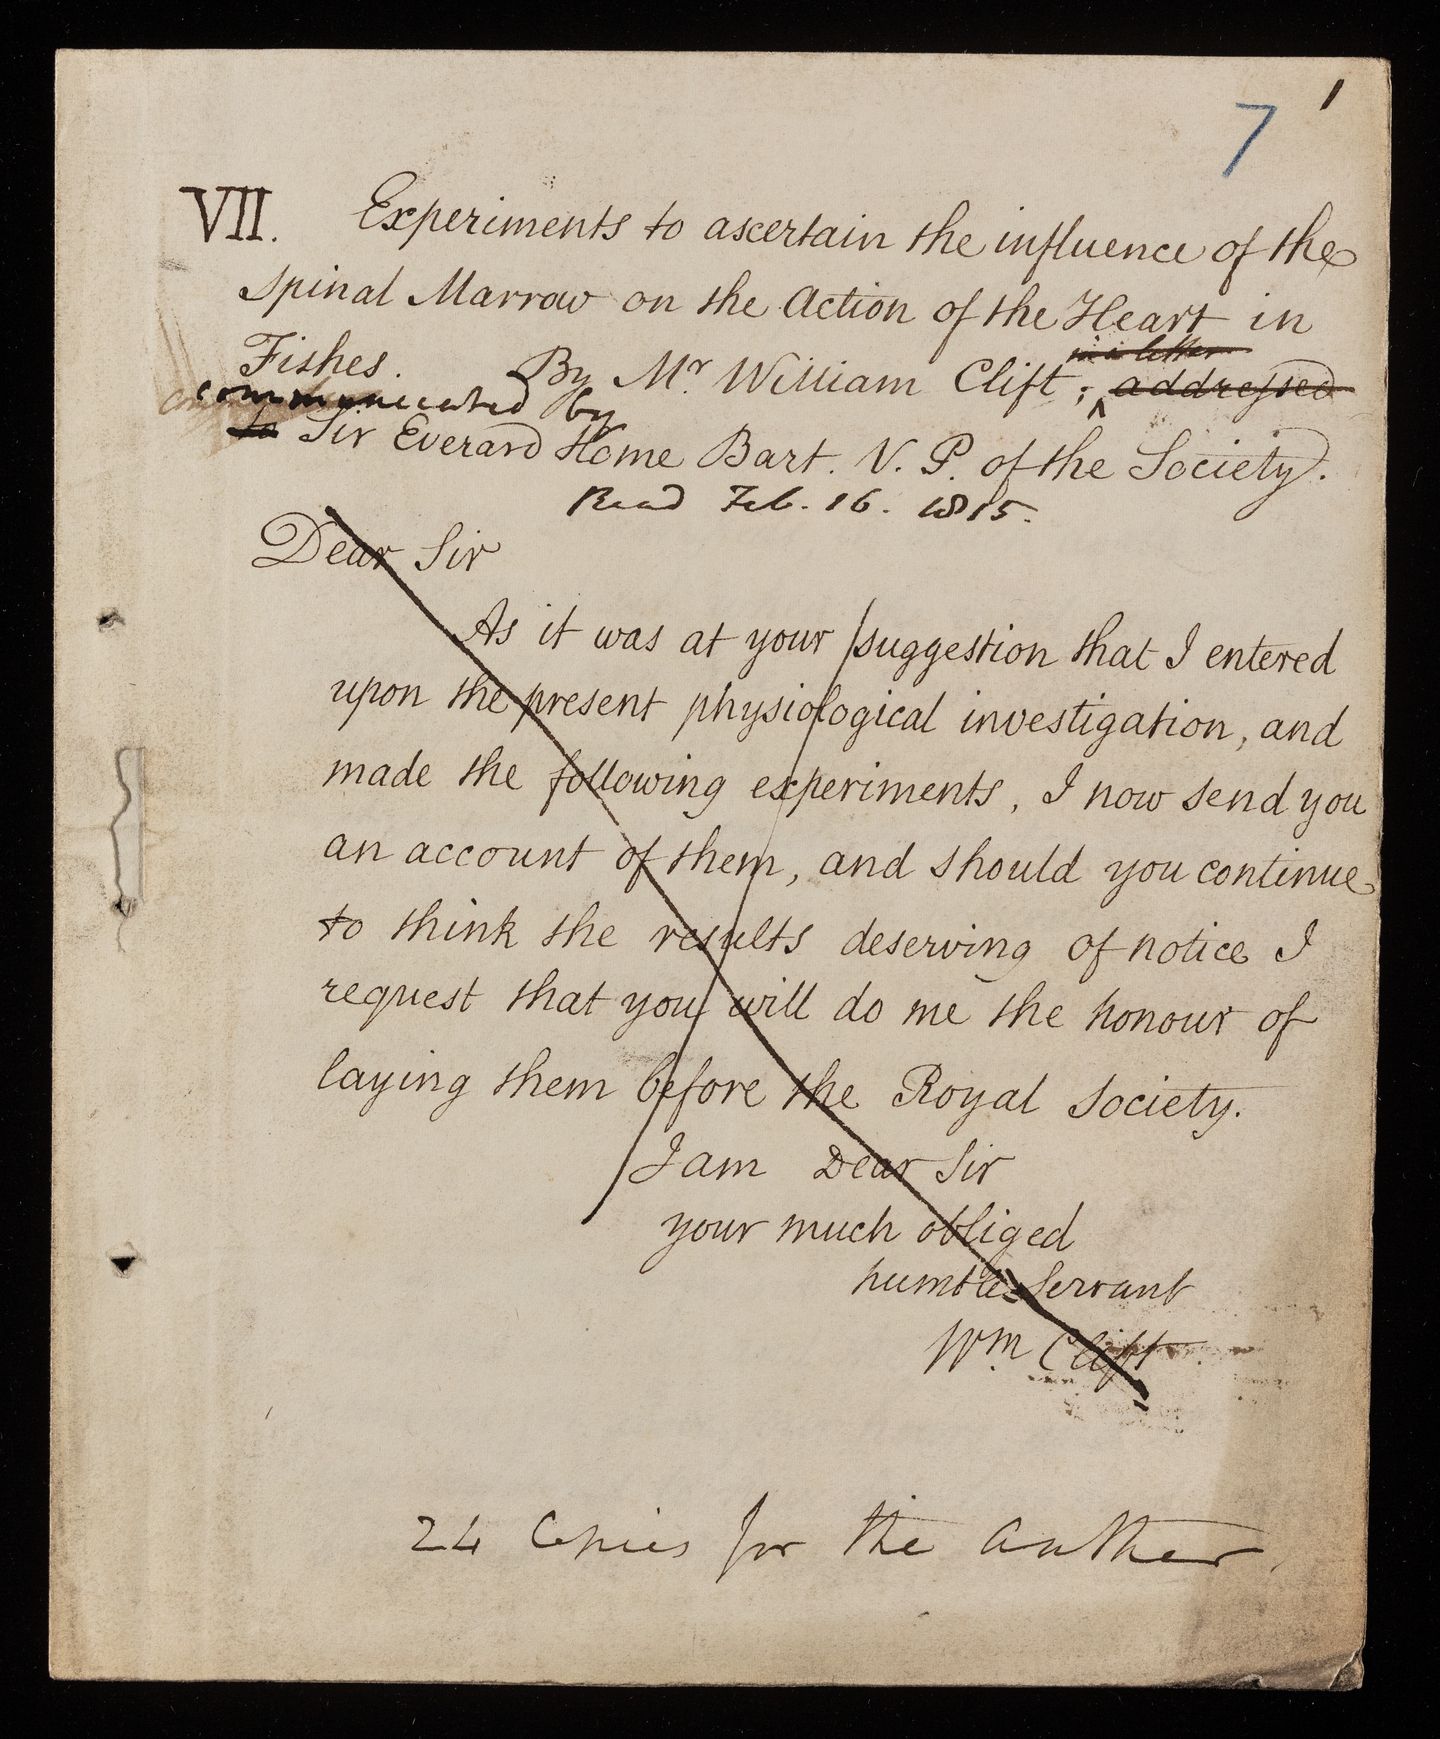 7 1
VII. Experiments to ascertain the influence of the
spinal Marrow on the Action of the Heart in
in a letter
Fishes. By Mr. William Clift; addressed
communicated by
to Sir Everard Home Bart. V. P. of the Society.
Read Feb. 16. 1815.
Dear Sir
As it was at your suggestion that I entered
upon the present physiological investigation, and
made the following experiments, I now send you
an account of them, and should you continue
to think the results deserving of notice I
request that you will do me the honour of
laying them before the Royal Society.
I am Dear Sir
your much obliged
humble Servant
Wm Clift
24 Copies for the Author.